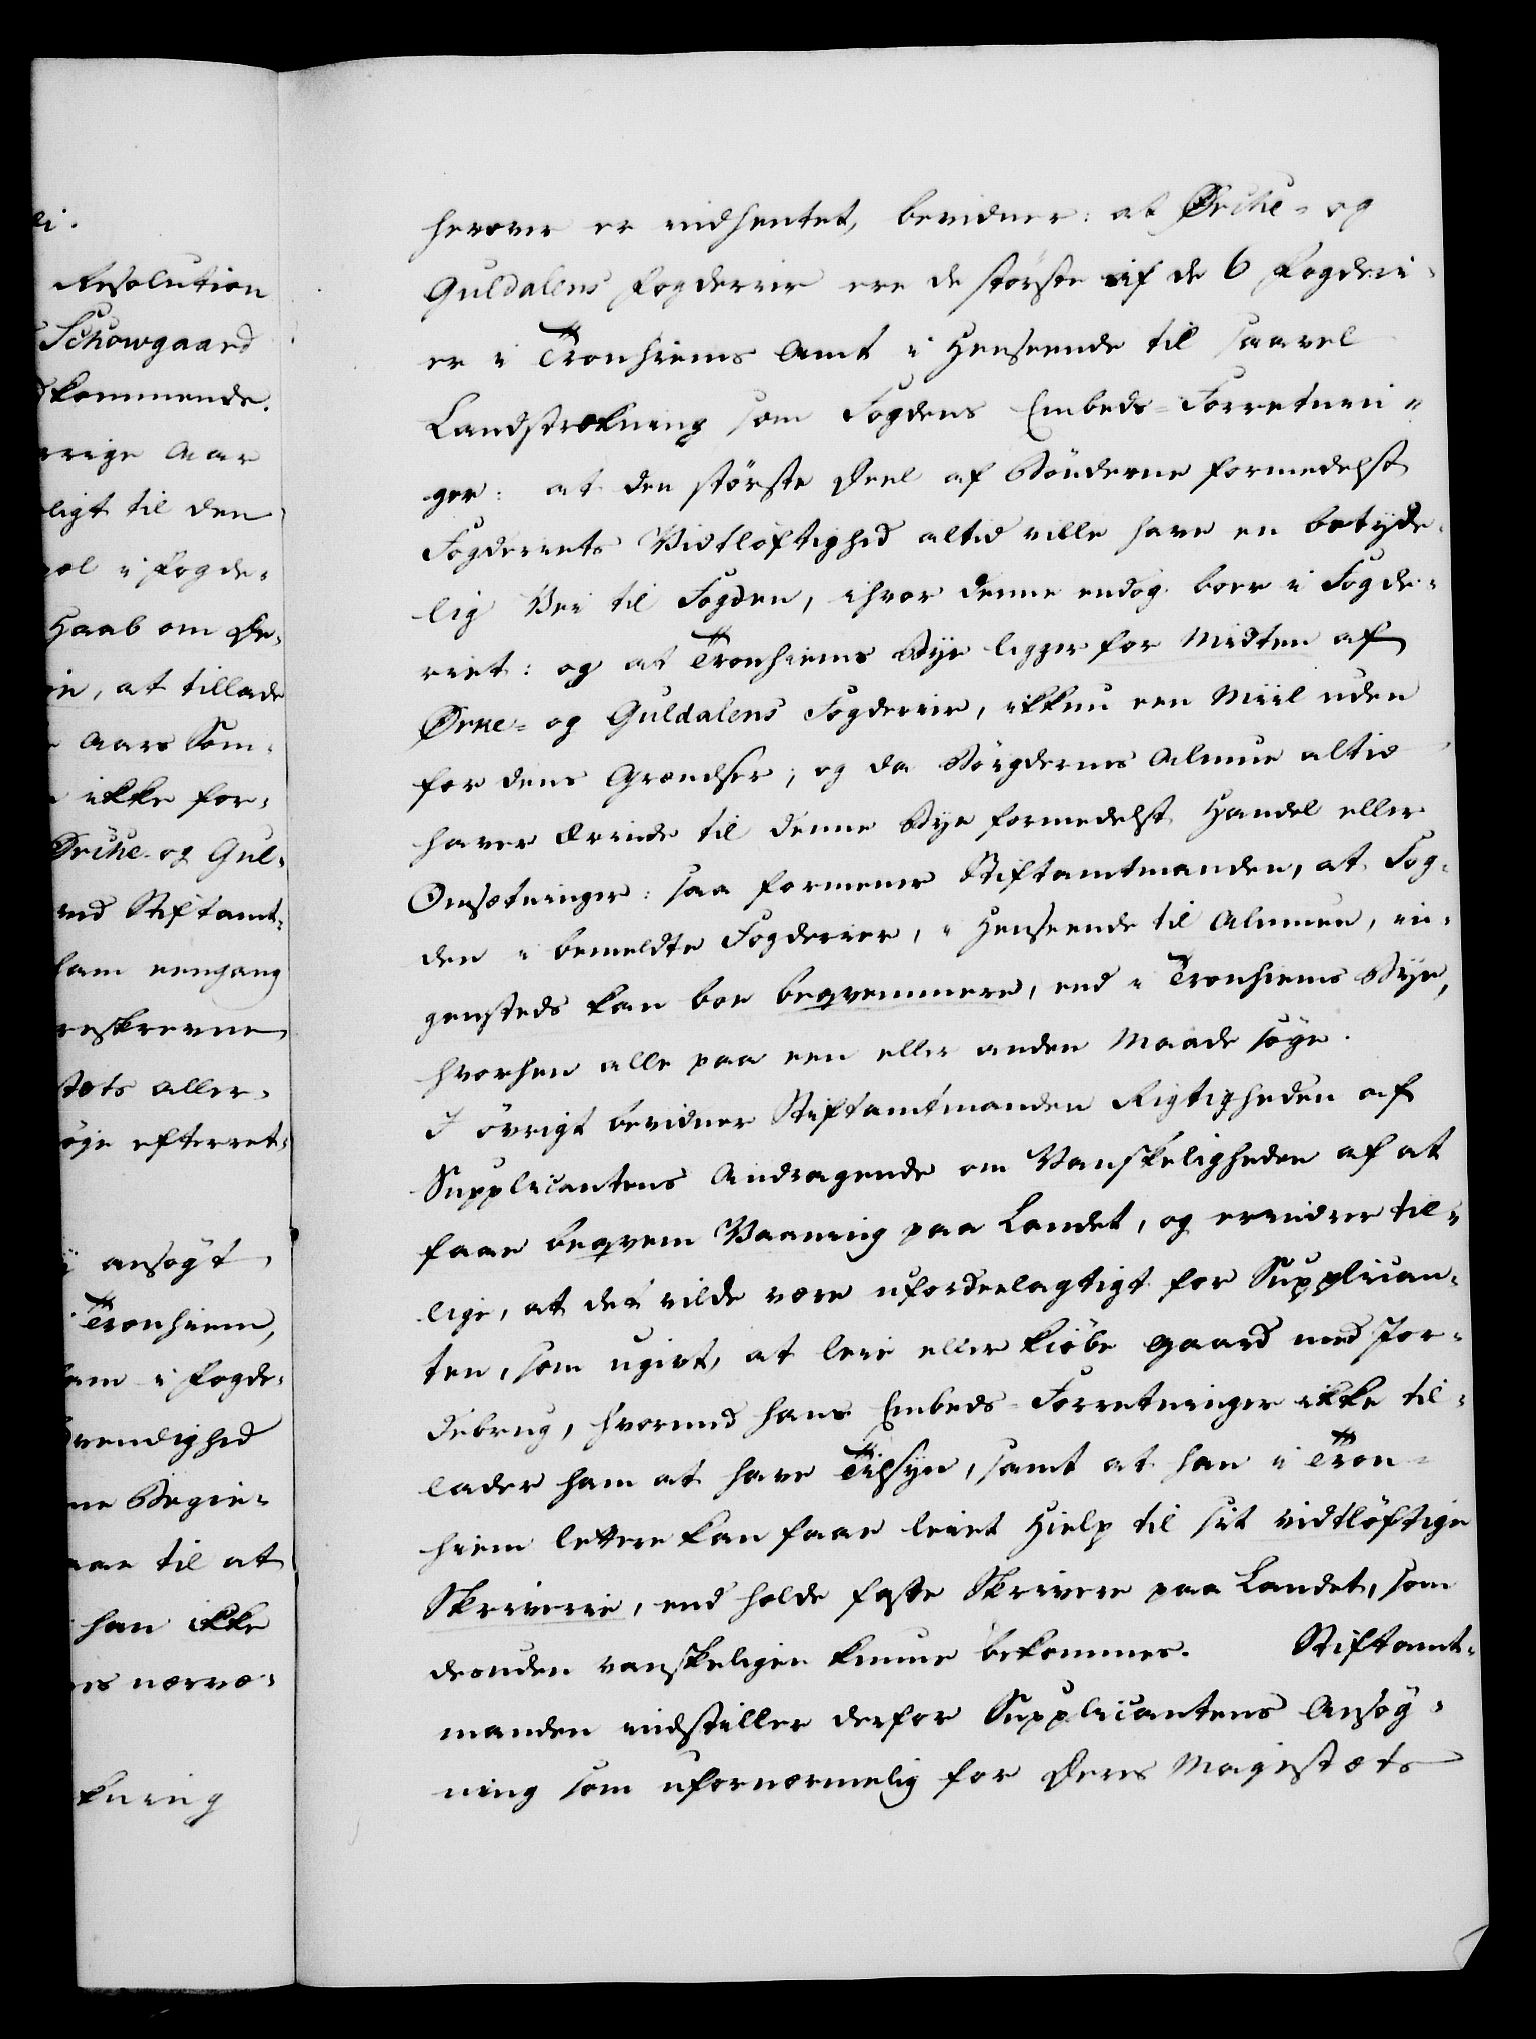 li.
Resolution
Schowgaard
dkommende.
rrige Aar
ligt til den
vel i Fogde-
Haab om De-
ie, at tillade
Aars Som-
ikke for-
Örche- og Gul-
ved Stiftamt-
ham eengang
reskrevne
stæts aller-
øje efterret-
ansøgt
Tronhiem,
ham i Fogde-
dvendighed
ne Begie-
aae til at
han ikke
es nærvæ-
kning
herover er indhentet, bevidner: at Örche- og
Guldalens Fogderier ere de største af de 6 Fogderi-
er i Tronhiems Amt i Henseende til saavel
Landstrækning som Fogdens Embeds-Forretnin-
ger: at den største Deel af Bönderne formedelst
Fogderiets Vidtløftighed altid ville have en betyde-
lig Vei til Fogden, ihvor denne endog boer i Fogde-
riet: og at Tronhiems Bye ligger for Midten af
Örke- og Guldalens Fogderier, ikkun een Miil uden
for dens Grændser; og da Böigdernes Almue altid
haver Ærinde til denne Bye formedelst Handel eller
Omsætninger: saa formener Stiftamtmanden, at Fog-
den i bemeldte Fogderier, i Henseende til Almuen, in-
gensteds kan boe beqvemmere, end i Tronhiems Bye,
hvorhen alle paa een eller anden Maade søge.
I övrigt bevidner Stiftamtmanden Rigtigheden af
Supplicantens Andragende om Vanskeligheden af at
faae beqvem Vaaning paa Landet, og erindrer til-
lige, at det vilde være ufordeelagtigt for Supplican-
ten, som ugivt, at leie eller kiöbe Gaard med Jor-
debrug, hvormed hans Embeds-Forretninger ikke til-
lader ham at have Tilsyn, samt at han i Tron-
hiem lettere kan faae leiet Hielp til sit vidtløftige
Skriverie, end holde faste Skrivere paa Landet, som
desuden vanskeligen kunne bekommes. Stiftamt-
manden indstiller derfor Supplicantens Ansøg-
ning som ufornærmelig for Deres Majestæts